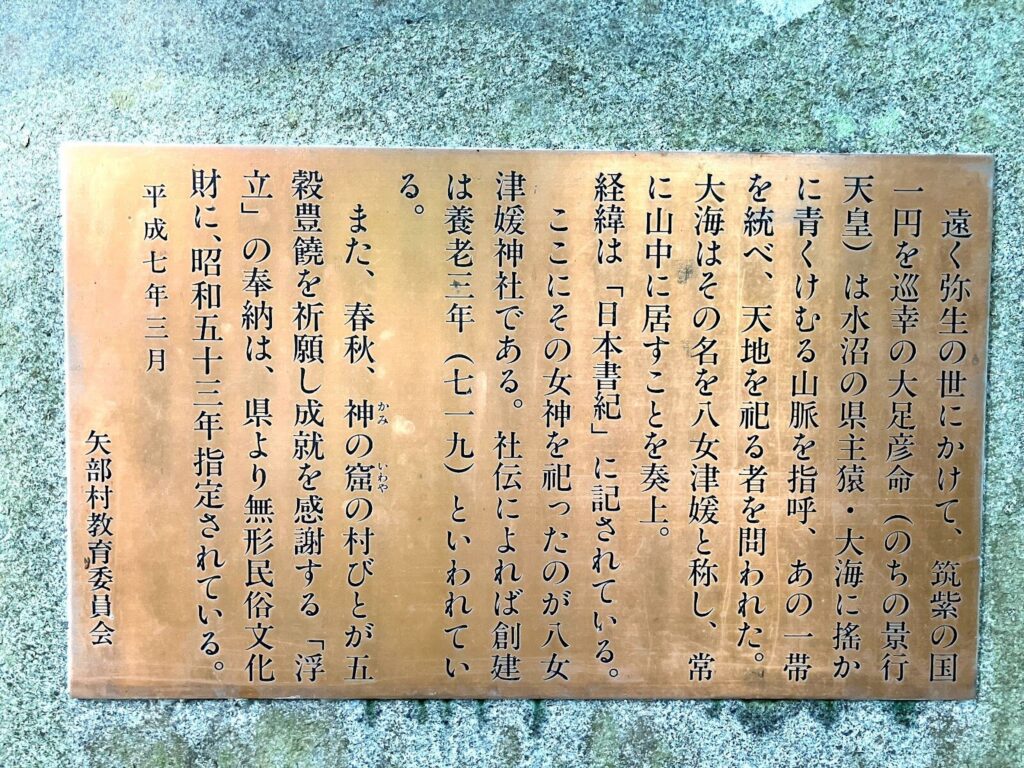 遠く弥生の世にかけて、筑紫の国
一円を巡幸の大足彦命（のちの景行
天皇）は水沼の県主猿・大海に搖か
に青くけむる山脈を指呼、あの一帯
を統べ、天地を祀る者を問われた。
大海はその名を八女津媛と称し、常
に山中に居すことを奏上。
経緯は「日本書紀」に記されている。
ここにその女神を祀ったのが八女
津媛神社である。社伝によれば創建
は養老三年（七一九）といわれてい
る。
また、春秋、神の窟の村びとが五
かみ いわや
穀豊饒を祈願し成就を感謝する「浮
立」の奉納は、県より無形民俗文化
財に、昭和五十三年指定されている。
平成七年三月
矢部村教育委員会